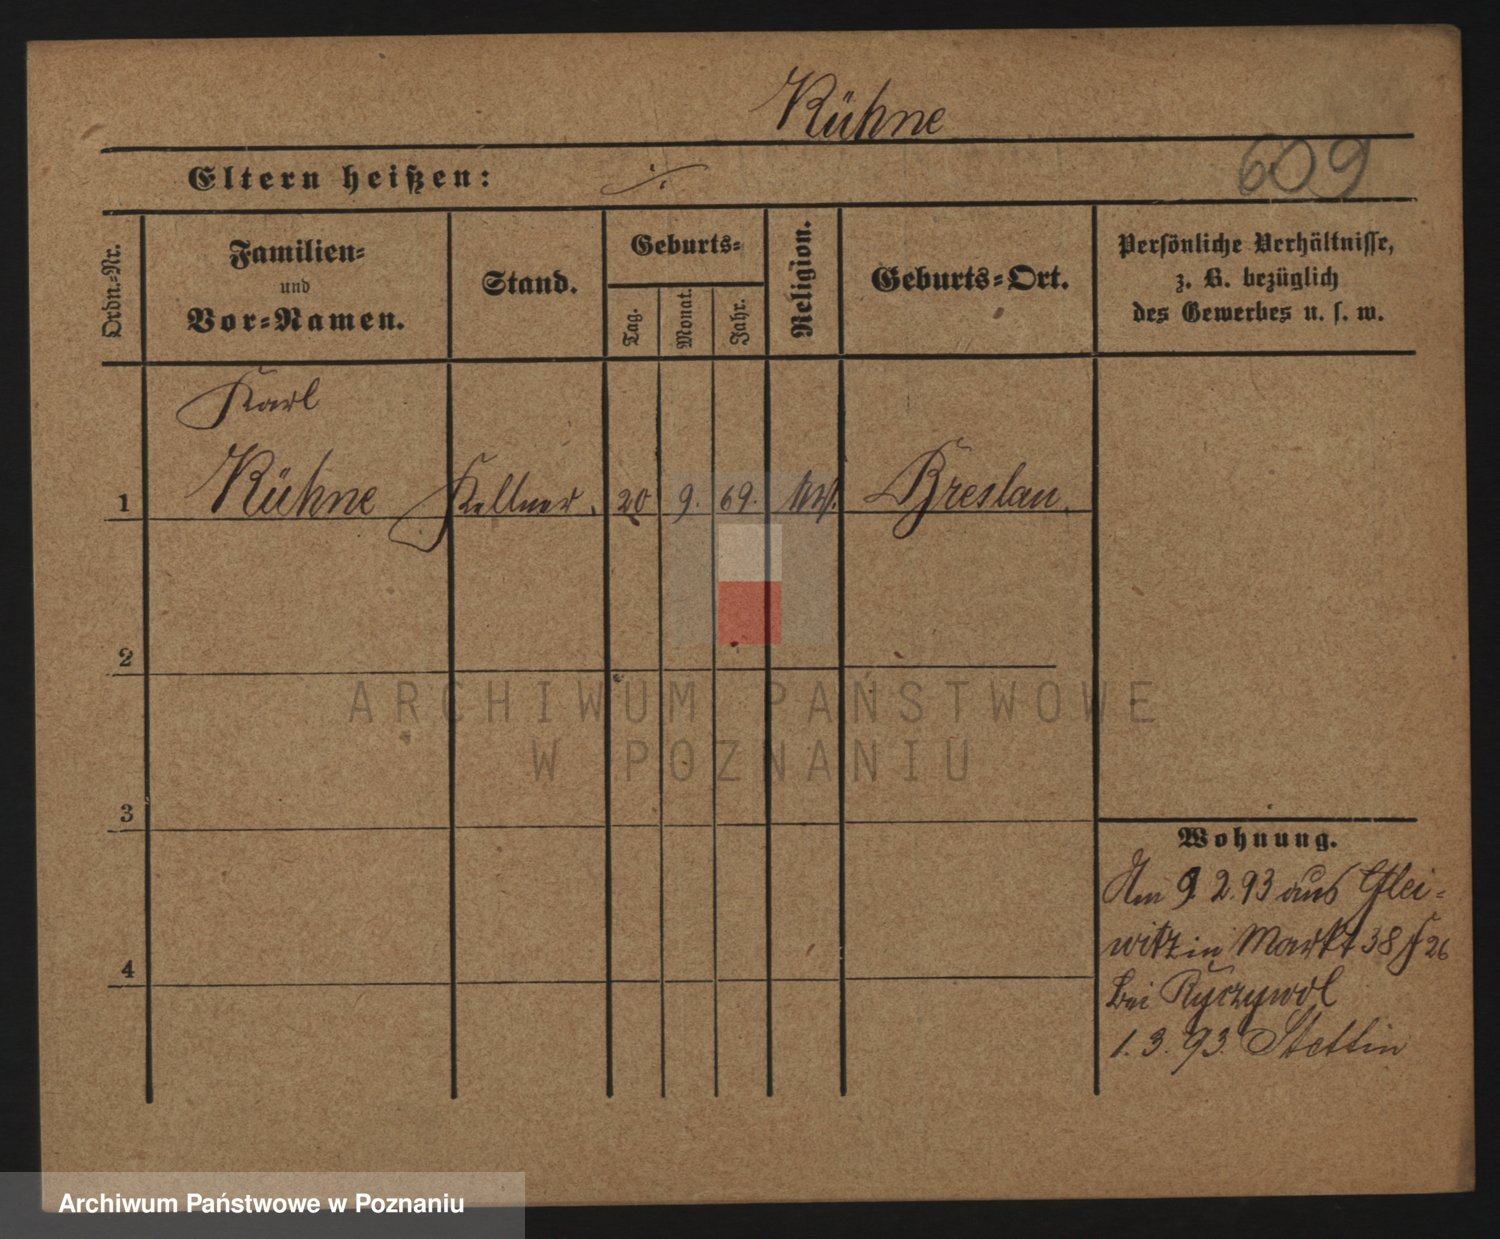 Kühne
Eltern heißen: ./.
609
Ordn.-Nr.
Familien-
und
Vor-Namen.
Stand.
Geburts-
Tag.
Monat.
Jahr.
Religion.
Geburts-Ort.
Persönliche Verhältnisse,
z. B. bezüglich
des Gewerbes u. s. w.
Karl
1 Kühne Kellner. 20 9. 69. Breslau.
2
3
4
Wohnung.
Am 9. 2. 93 aus Glei-
witz in Markt 38 26
bei Ryczywol
1. 3. 93. Stettin
ARCHIWUM PAŃSTWOWE
W POZNANIU
Archiwum Państwowe w Poznaniu